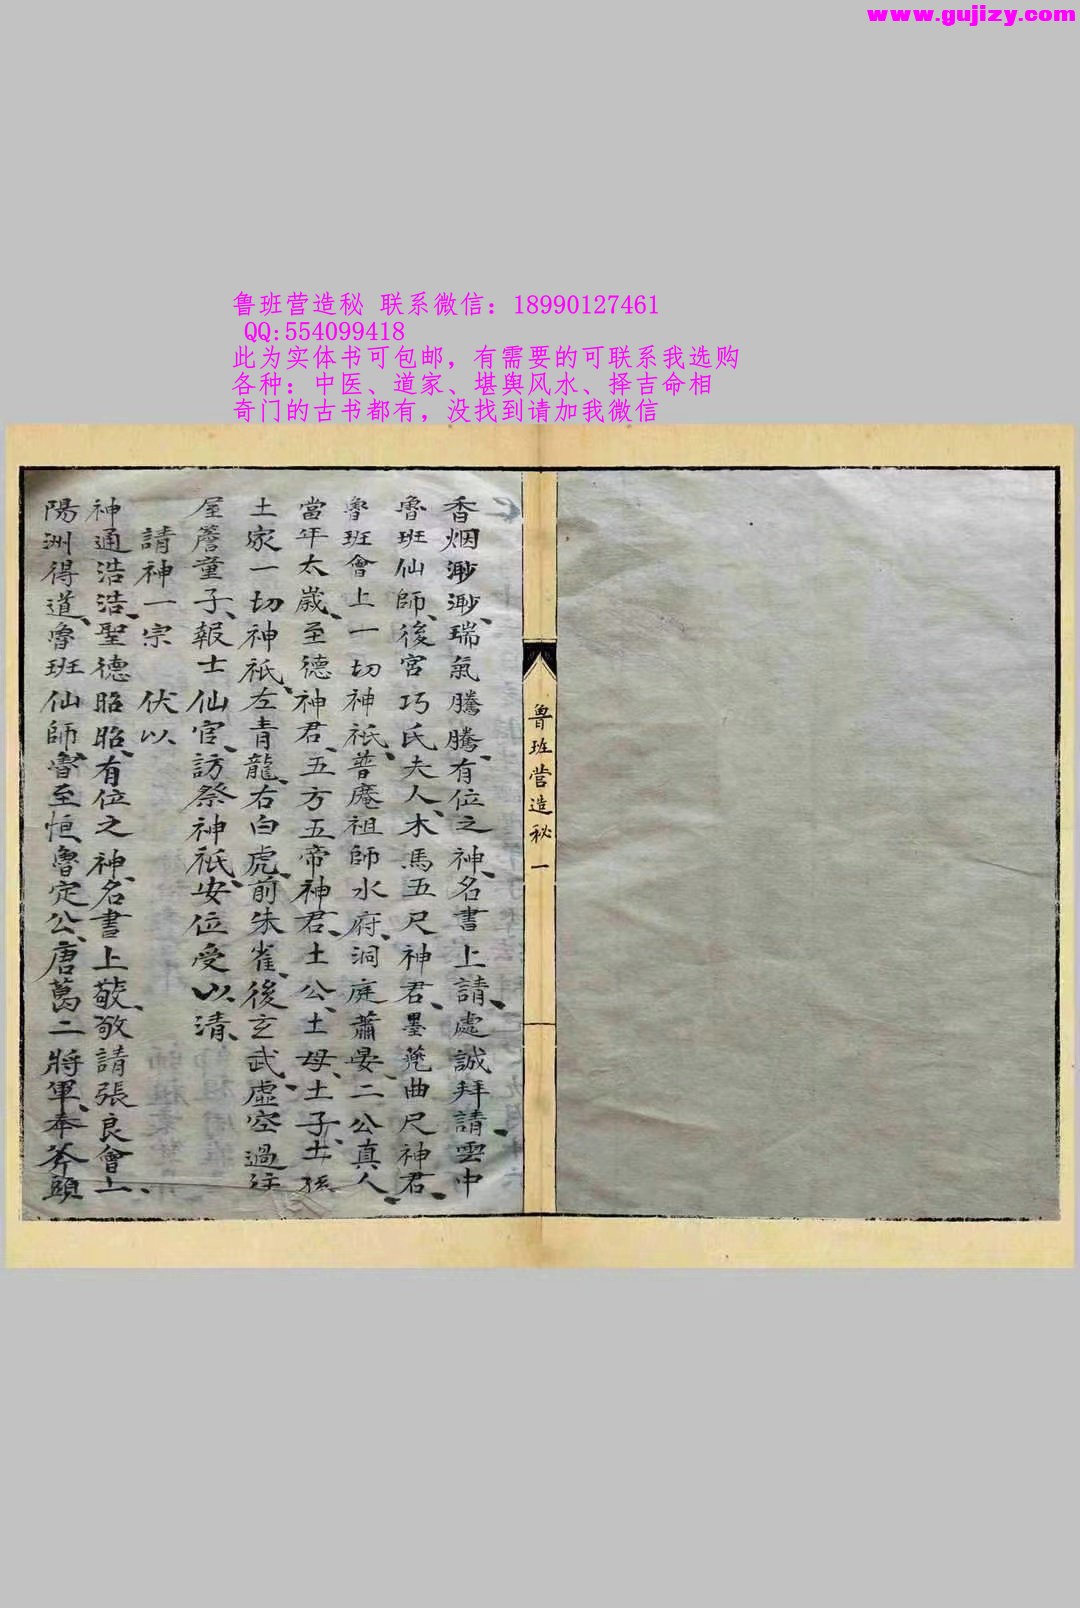 www.gujizy.com
鲁班营造秘 联系微信：18990127461
QQ:554099418
此为实体书可包邮，有需要的可联系我选购
各种：中医、道家、堪舆风水、择吉命相
奇门的古书都有，没找到请加我微信
魯班营造秘 一
香烟渺渺、瑞氣騰騰、有位之神、名書上請、處誠拜請、雲中
魯班仙師、後宮巧氏夫人、木馬五尺神君、墨蔸曲尺神君、
魯班會上一切神祇、普庵祖師水府、洞庭蕭晏二公真人、
當年太歲、至德神君、五方五帝神君、土公、土母、土子、土孫
土家一切神祇、左青龍、右白虎、前朱雀、後玄武、虛空過往
屋簷童子、報士仙官、訪祭神祇、安位受以清、
請神一宗 伏以
神通浩浩、聖德昭昭、有位之神、名書上敬、敬請張良會上、
陽洲得道、魯班仙師、曾至恒、魯定公、唐葛二將軍、奉斧頭